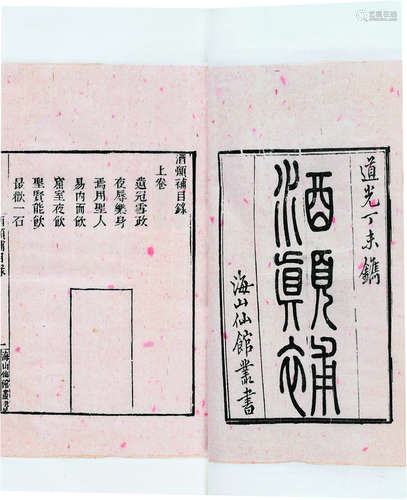 道光丁未鐫
酒顛補
海山仙館叢書
酒顛補目錄
上卷
遺冠雪政
夜辱樂身
焉用聖人
易內而飲
窟室夜飲
聖賢能飲
最飲一石
酒顛補目錄
一
海山仙館叢書